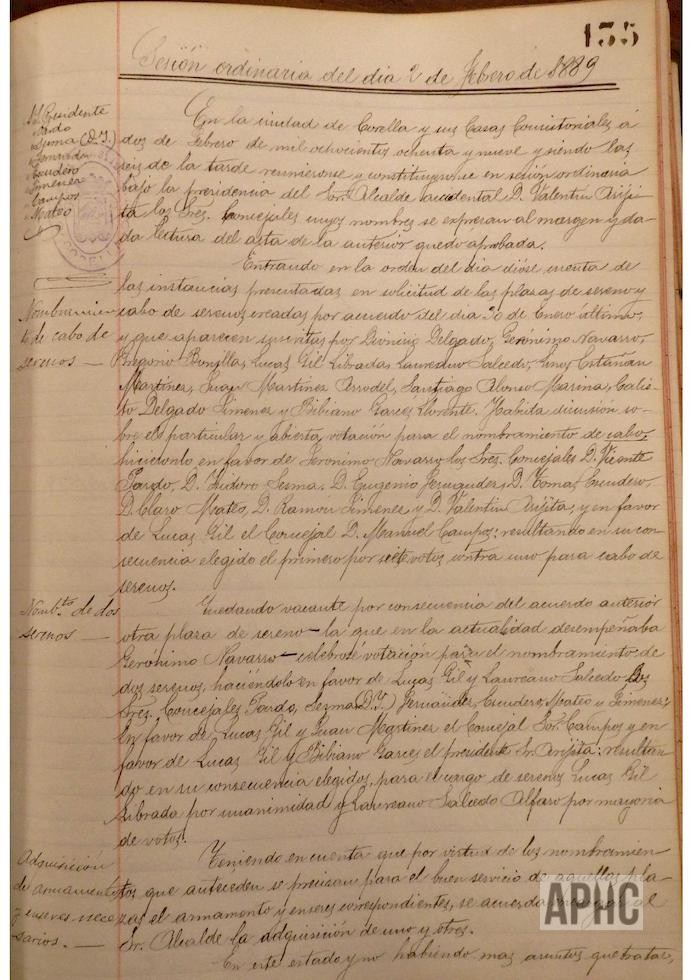 135
Sesión ordinaria del dia 2 de Febrero de 1889
Presidente
Pardo
Sesma (D. I.)
Fernandez
Escudero
Jimenez
Campos
Mateo
En la ciudad de Corella y sus Casas Consistoriales á
dos de Febrero de mil ochocientos ochenta y nueve y siendo las
seis de la tarde reunieronse y constituyeronse en sesión ordinaria
bajo la presidencia del Sor. Alcalde accidental D. Valentin Ariji-
ta los Sres. Concejales cuyos nombres se expresan al margen y da-
da lectura del acta de la anterior quedo aprobada.
Entrando en la orden del dia dióse cuenta de
Nombramien
to de cabo de
serenos —
las instancias presentadas en solicitud de las plazas de sereno y
cabo de serenos creadas por acuerdo del dia 30 de Enero último,
y que aparecen suscritas por Dionicio Delgado, Gerónimo Navarro,
Gregorio Bonilla, Lucas Gil Librada, Laureano Salcedo, Lino Estañan
Martinez, Juan Martinez Arrodel, Santiago Alonso Marina, Calis-
to Delgado Jimenez y Bibiano Garces Llorente. Habida discusión so-
bre el particular y abierta votación para el nombramiento de cabo,
hicieronlo en favor de Jeronimo Navarro los Sres. Concejales D. Vicente
Pardo, D. Isidoro Sesma, D. Eugenio Fernandez, D. Tomas Escudero,
D. Claro Mateo, D. Ramon Jimenez y D. Valentin Arijita, y en favor
de Lucas Gil el Concejal D. Manuel Campos: resultando en su con-
secuencia elegido el primero por siete votos contra uno para cabo de
serenos.
Nomb.to de dos
serenos —
Quedando vacante por consecuencia del acuerdo anterior
otra plaza de sereno — la que en la actualidad desempeñaba
Gerónimo Navarro — celebróse votación para el nombramiento de
dos serenos, haciéndolo en favor de Lucas Gil y Laureano Salcedo los
Sres. Concejales Pardo, Sezma (D. I.) Fernández, Escudero, Mateo y Jimenez:
En favor de Lucas Gil y Juan Martinez el Concejal Sor. Campos y en
favor de Lucas Gil y Bibiano Garces el presidente Sr. Arijita: resultan
do en su consecuencia elegidos para el cargo de serenos Lucas Gil
Librada por unanimidad y Laureano Salcedo Alfaro por mayoria
de votos.
Adquisición
de armamento
y enseres nece
sarios. —
Teniendo en cuenta que por virtud de los nombramien
tos que anteceden se precisan para el buen servicio de aquellas pla-
zas el armamento y enseres correspondientes, se acuerda al
Sr. Alcalde la adquisición de uno y otros.
En este estado y no habiendo mas asuntos que tratar,
APHC